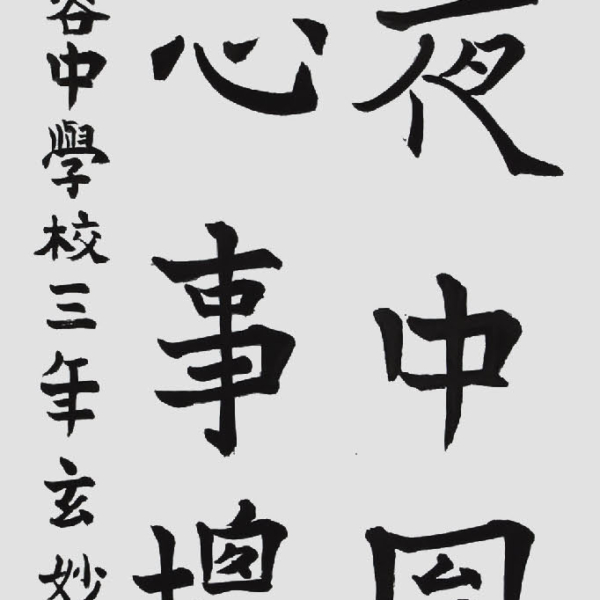 夜中
心事
谷中學校三年玄妙